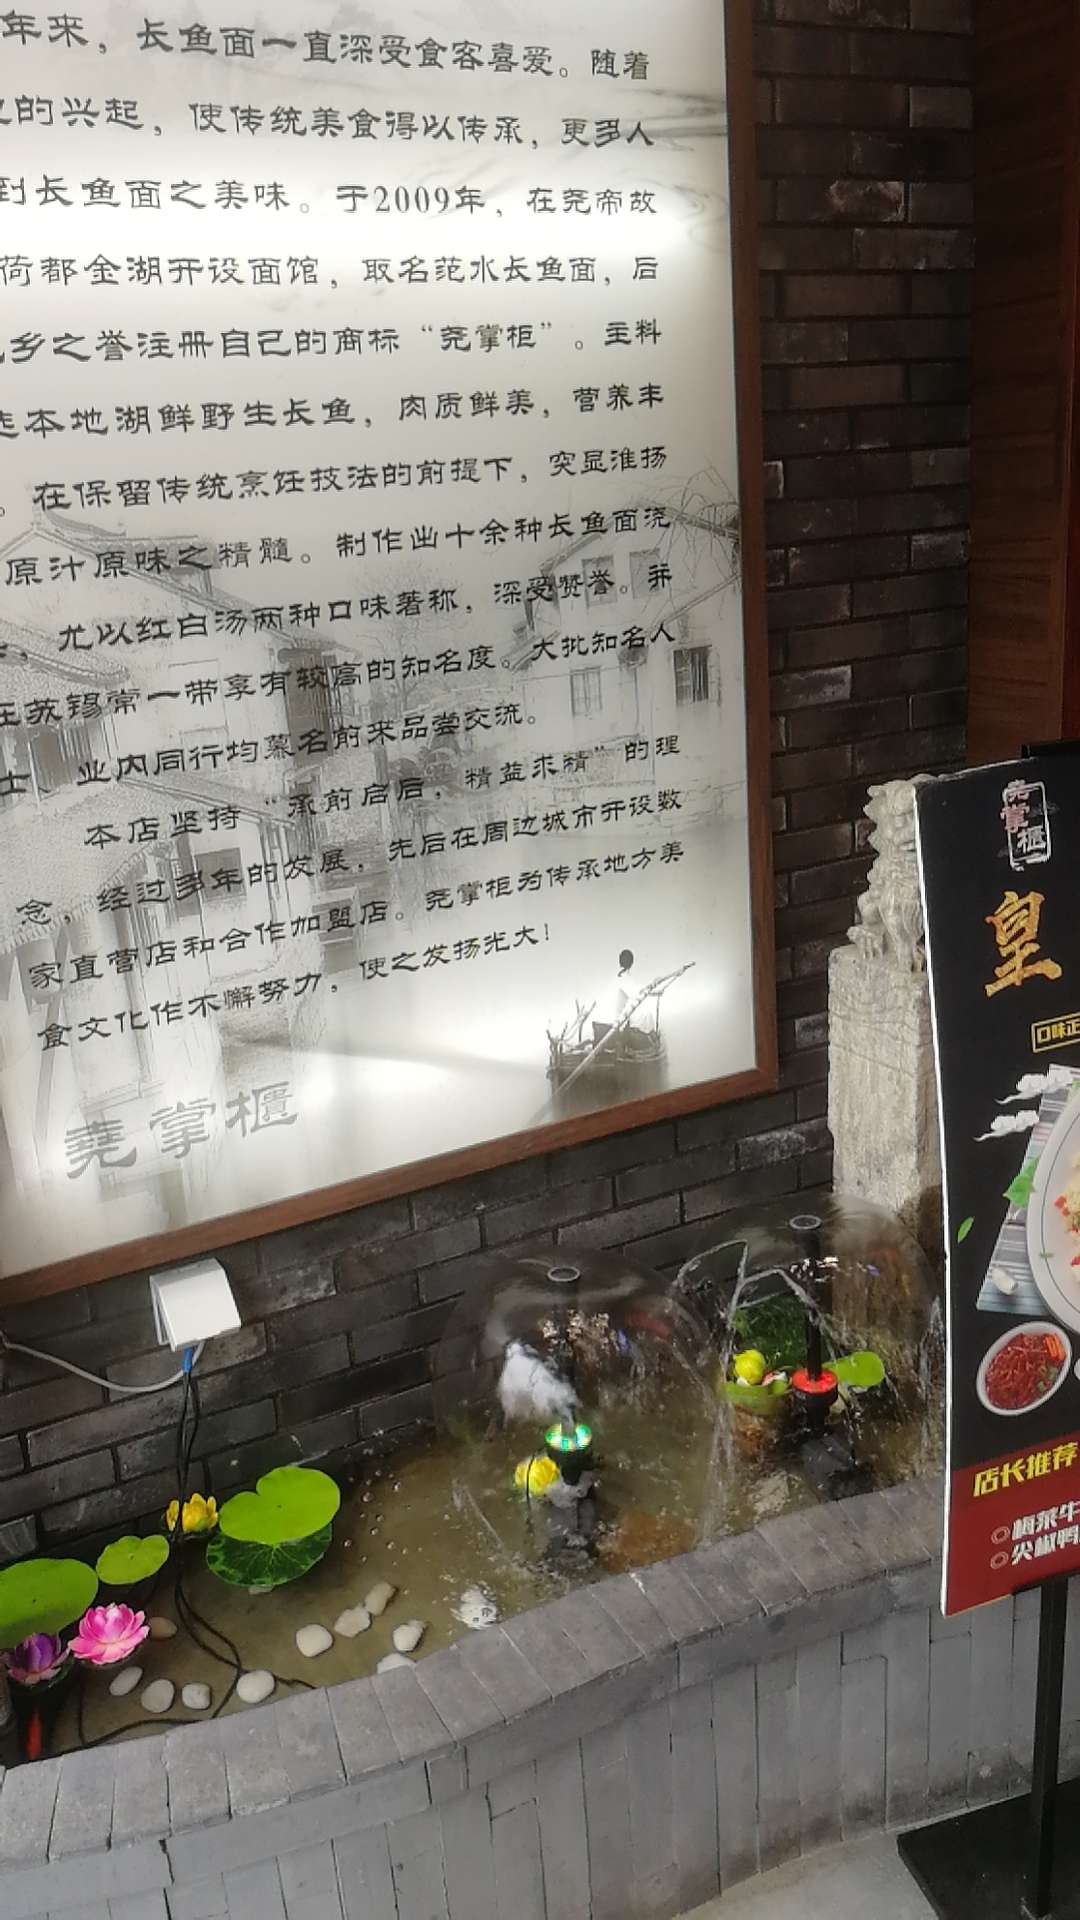 年来，长鱼面一直深受食客喜爱。随着
的兴起，使传统美食得以传承，更多人
到长鱼面之美味。于2009年，在尧帝故
荷都金湖开设面馆，取名范水长鱼面，后
乡之誉注册自己的商标“尧掌柜”。主料
选本地湖鲜野生长鱼，肉质鲜美，营养丰
。在保留传统烹饪技法的前提下，突显淮扬
原汁原味之精髓。制作出十余种长鱼面浇
，尤以红白汤两种口味著称，深受赞誉。并
在苏锡常一带享有较高的知名度。大批知名人
士、业内同行均慕名前来品尝交流。
本店坚持“承前启后，精益求精”的理
念，经过多年的发展，先后在周边城市开设数
家直营店和合作加盟店。尧掌柜为传承地方美
食文化作不懈努力，使之发扬光大！
堯掌櫃
堯掌櫃
皇
口味正
店长推荐
◎梅菜牛
◎尖椒鸭